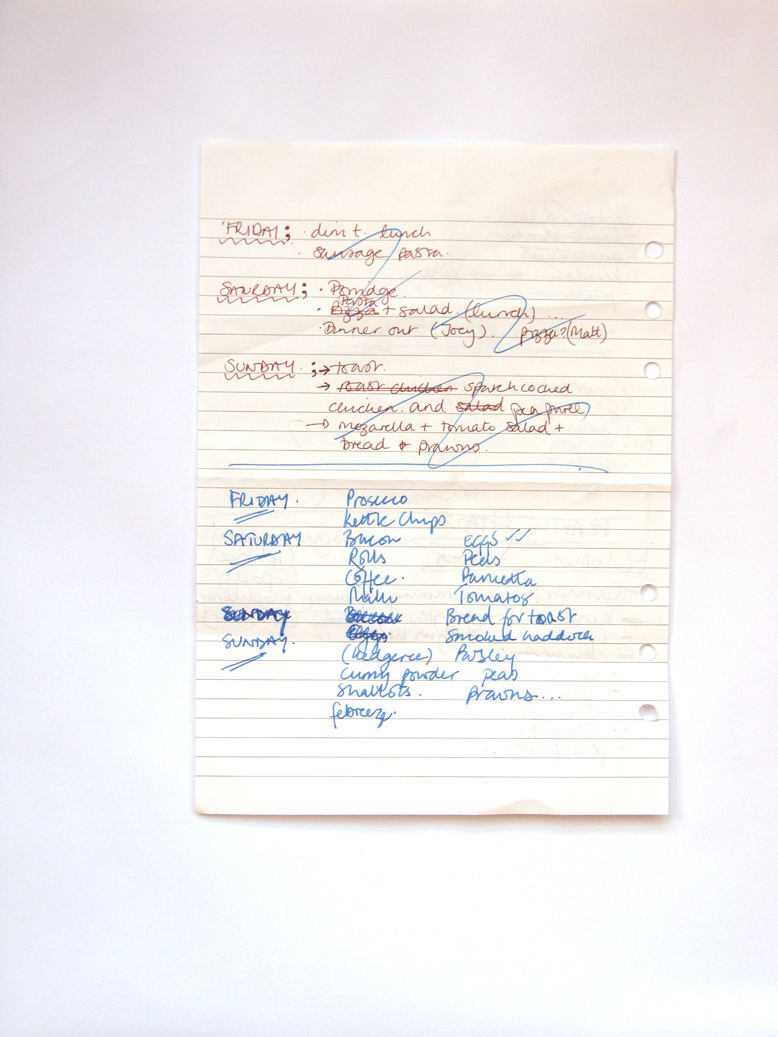 FRIDAY; · din t. lunch
· Sausage pasta.
SATURDAY; · Porridge.
Pasta
· Pizza + salad (lunch) ...
· Dinner out (Joey). pizza? (Matt)
SUNDAY. ; → toast.
→ roast chicken sparchcocked
chicken. and salad pea puree)
→ mozarella + tomato salad +
bread + prawns.
FRIDAY. Prosecco
Kettle Chips
SATURDAY Bacon EGGS ✓✓
Rolls Peas
Coffee. Pancetta
Milk Tomatos
SUNDAY Bacon Bread for toast
Eggs Smoked haddock
SUNDAY. (kedgeree) Parsley
curry powder peas
Shallots. prawns...
febreeze.